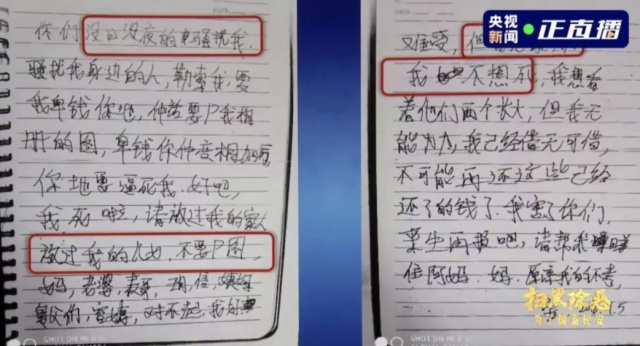 央视
新闻 正直播
你们没日没夜的骚扰我,
骚扰我身边的人,勒索我,要
我卑钱你地,仲话要P我相
册的图,卑钱你仲变相加
你地要逼死我,好吧,
我死啦,请放过我的家人
放过我的儿女,不要P图,
妈,老婆,表哥,
对不起,我好
难受,但
我 不想死,我想看
着他们两个长大,但我无
能为力,我已经借无可借,
不可能再还这些已经
还了的钱了。我害了你们,
来生再报吧,请帮我
阿妈。妈,原谅我的不孝,
扫黑除恶
为了国泰民安
SHOT ON MI
SHOT ON MI